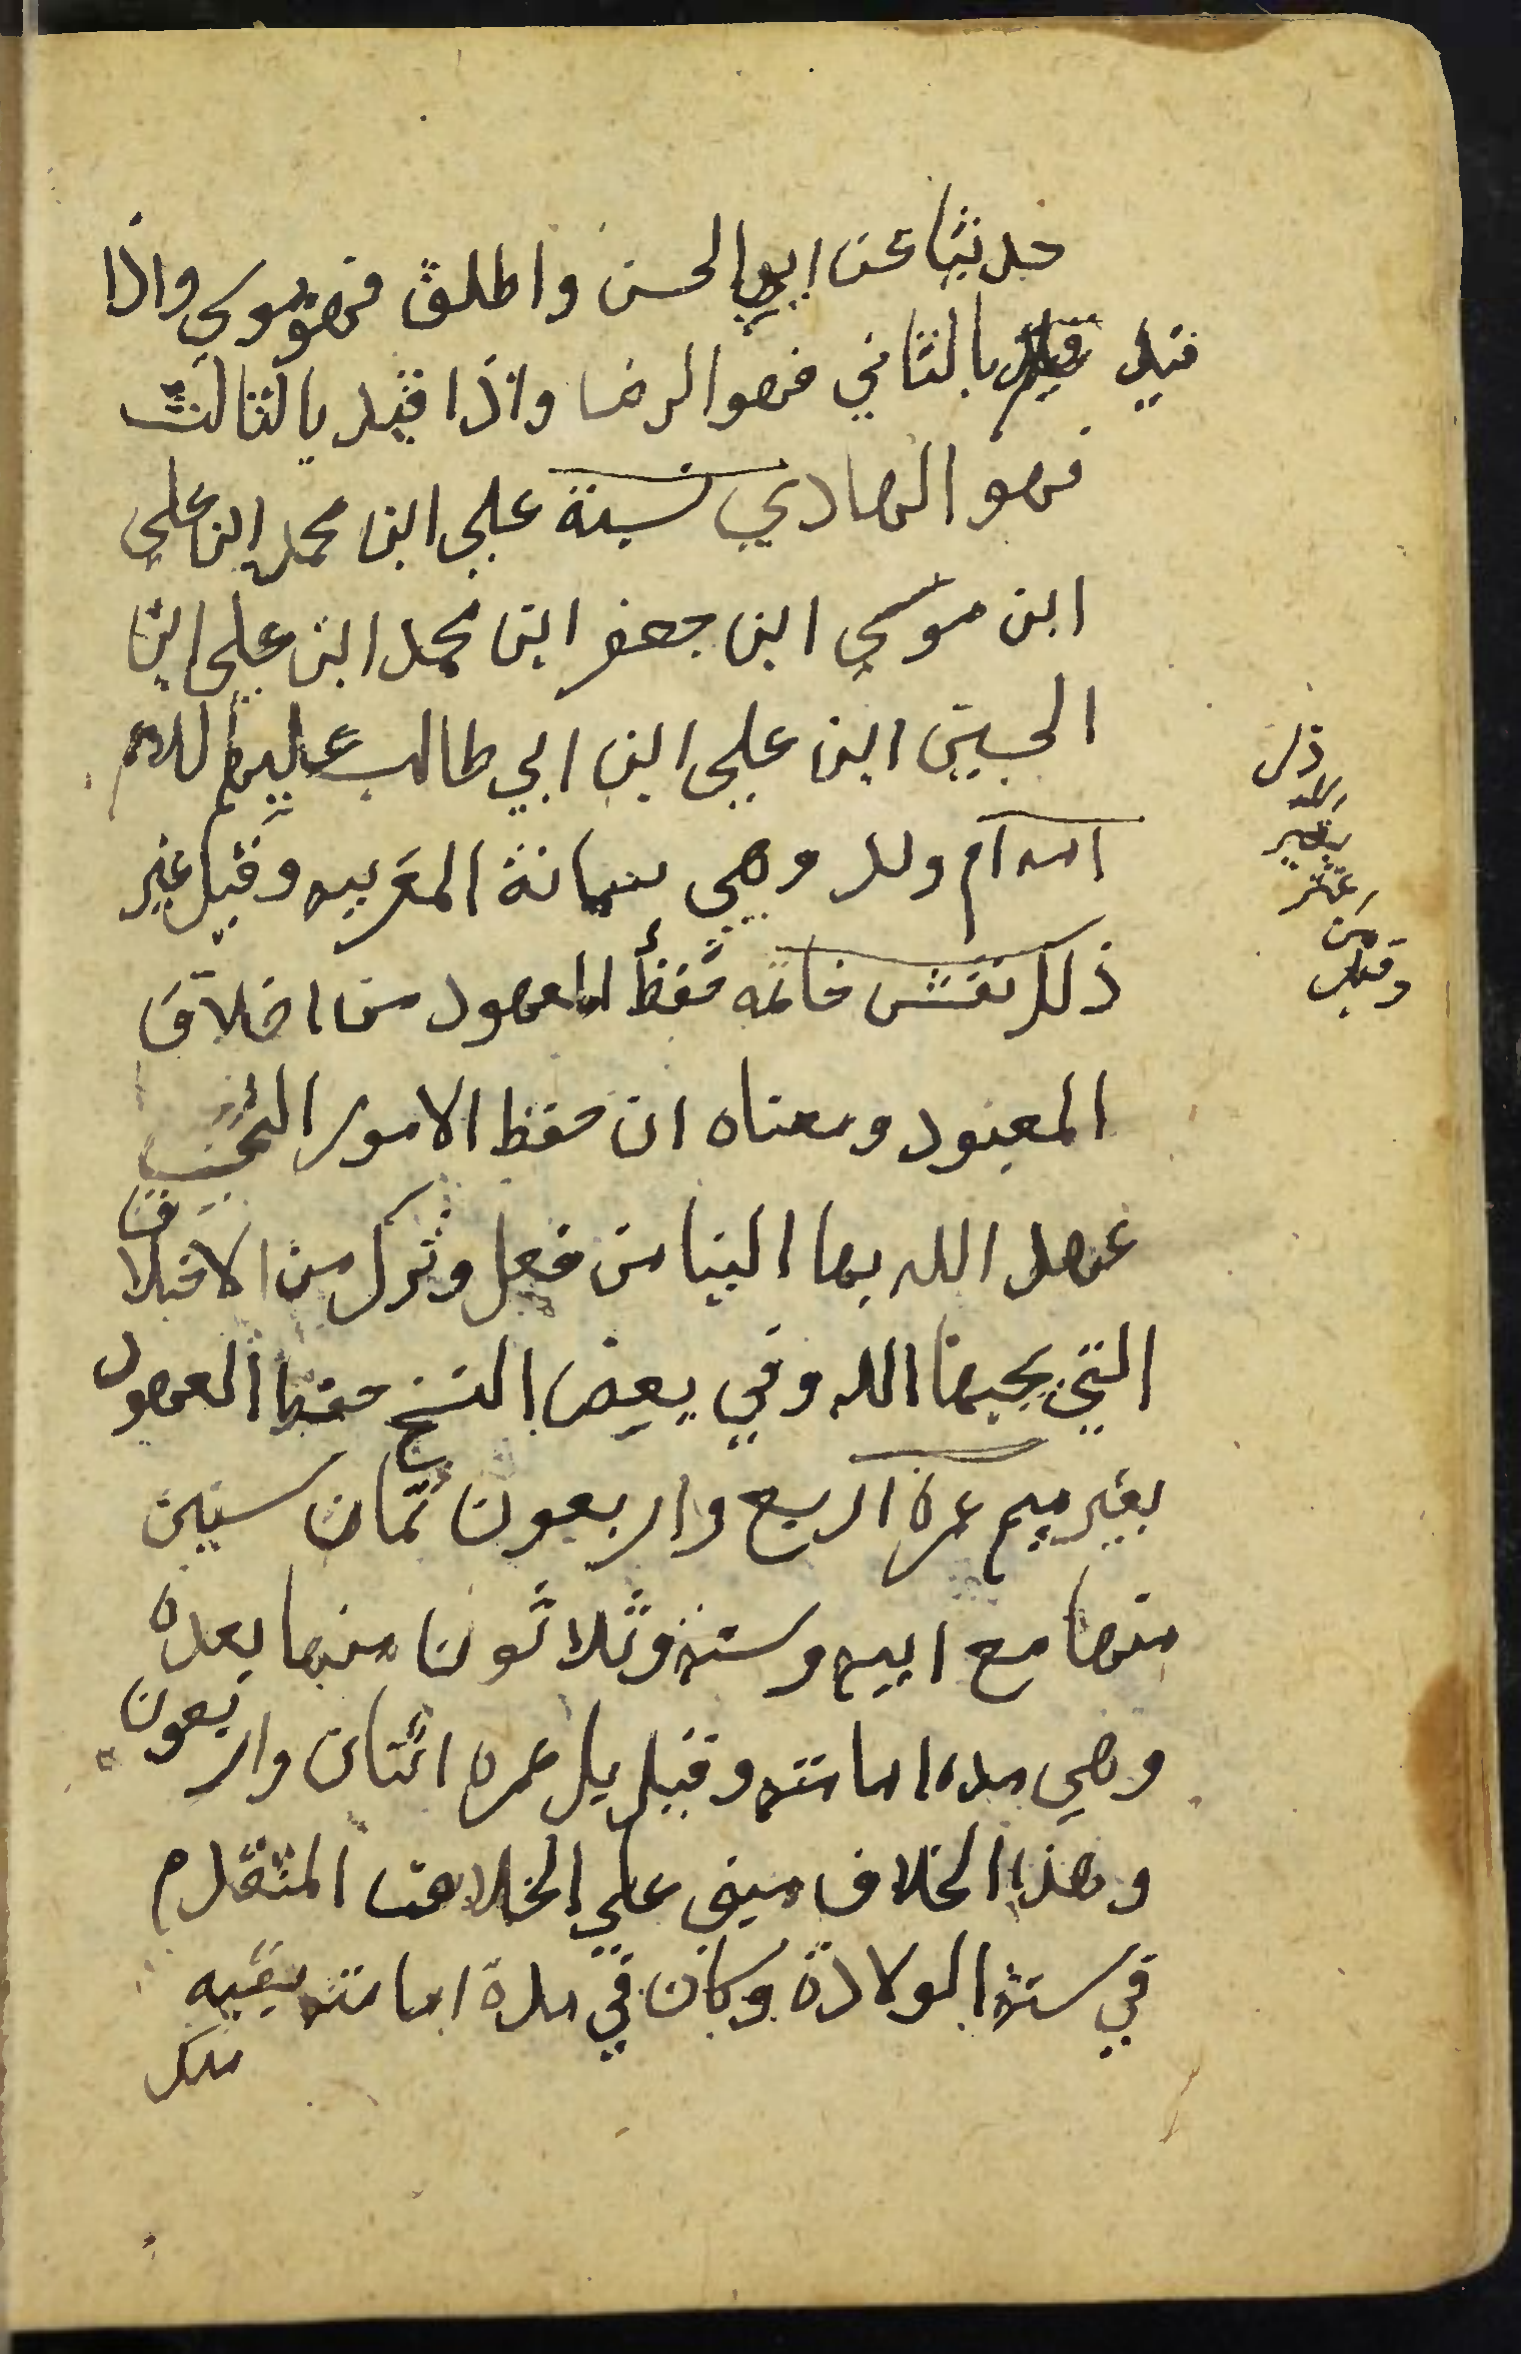 حديثا عن ابي الحسن واطلق فهو موسى واذا
قيد بالثاني فهو الرضا واذا قيد بالثالث
فهو الهادي نسبة علي ابن محمد ابن علي
ابن موسي ابن جعفر ابن محمد ابن علي ابن
الحسين ابن علي ابن ابي طالب عليهم السلام
امه ام ولد وهي سمانة المغربيه وقيل غير
ذلك نقش خاتمه حفظ المعهود من اخلاق
المعبود ومعناه ان حفظ الامور التي
عهد الله بها الينا من فعل وترك من الاخلاق
التي يحبها الله وفي بعض النسخ حفظ العهود
بغير ميم عمره اربع واربعون ثمان سنين
منها مع ابيه وستة وثلاثون منها بعده
وهي مده امامته وقيل بل عمره اثنان واربعون
وهذا الخلاف مبني علي الخلاف المتقدم
في سنة الولادة وكان في مدة امامته بقيه
ملك
وقيل
من